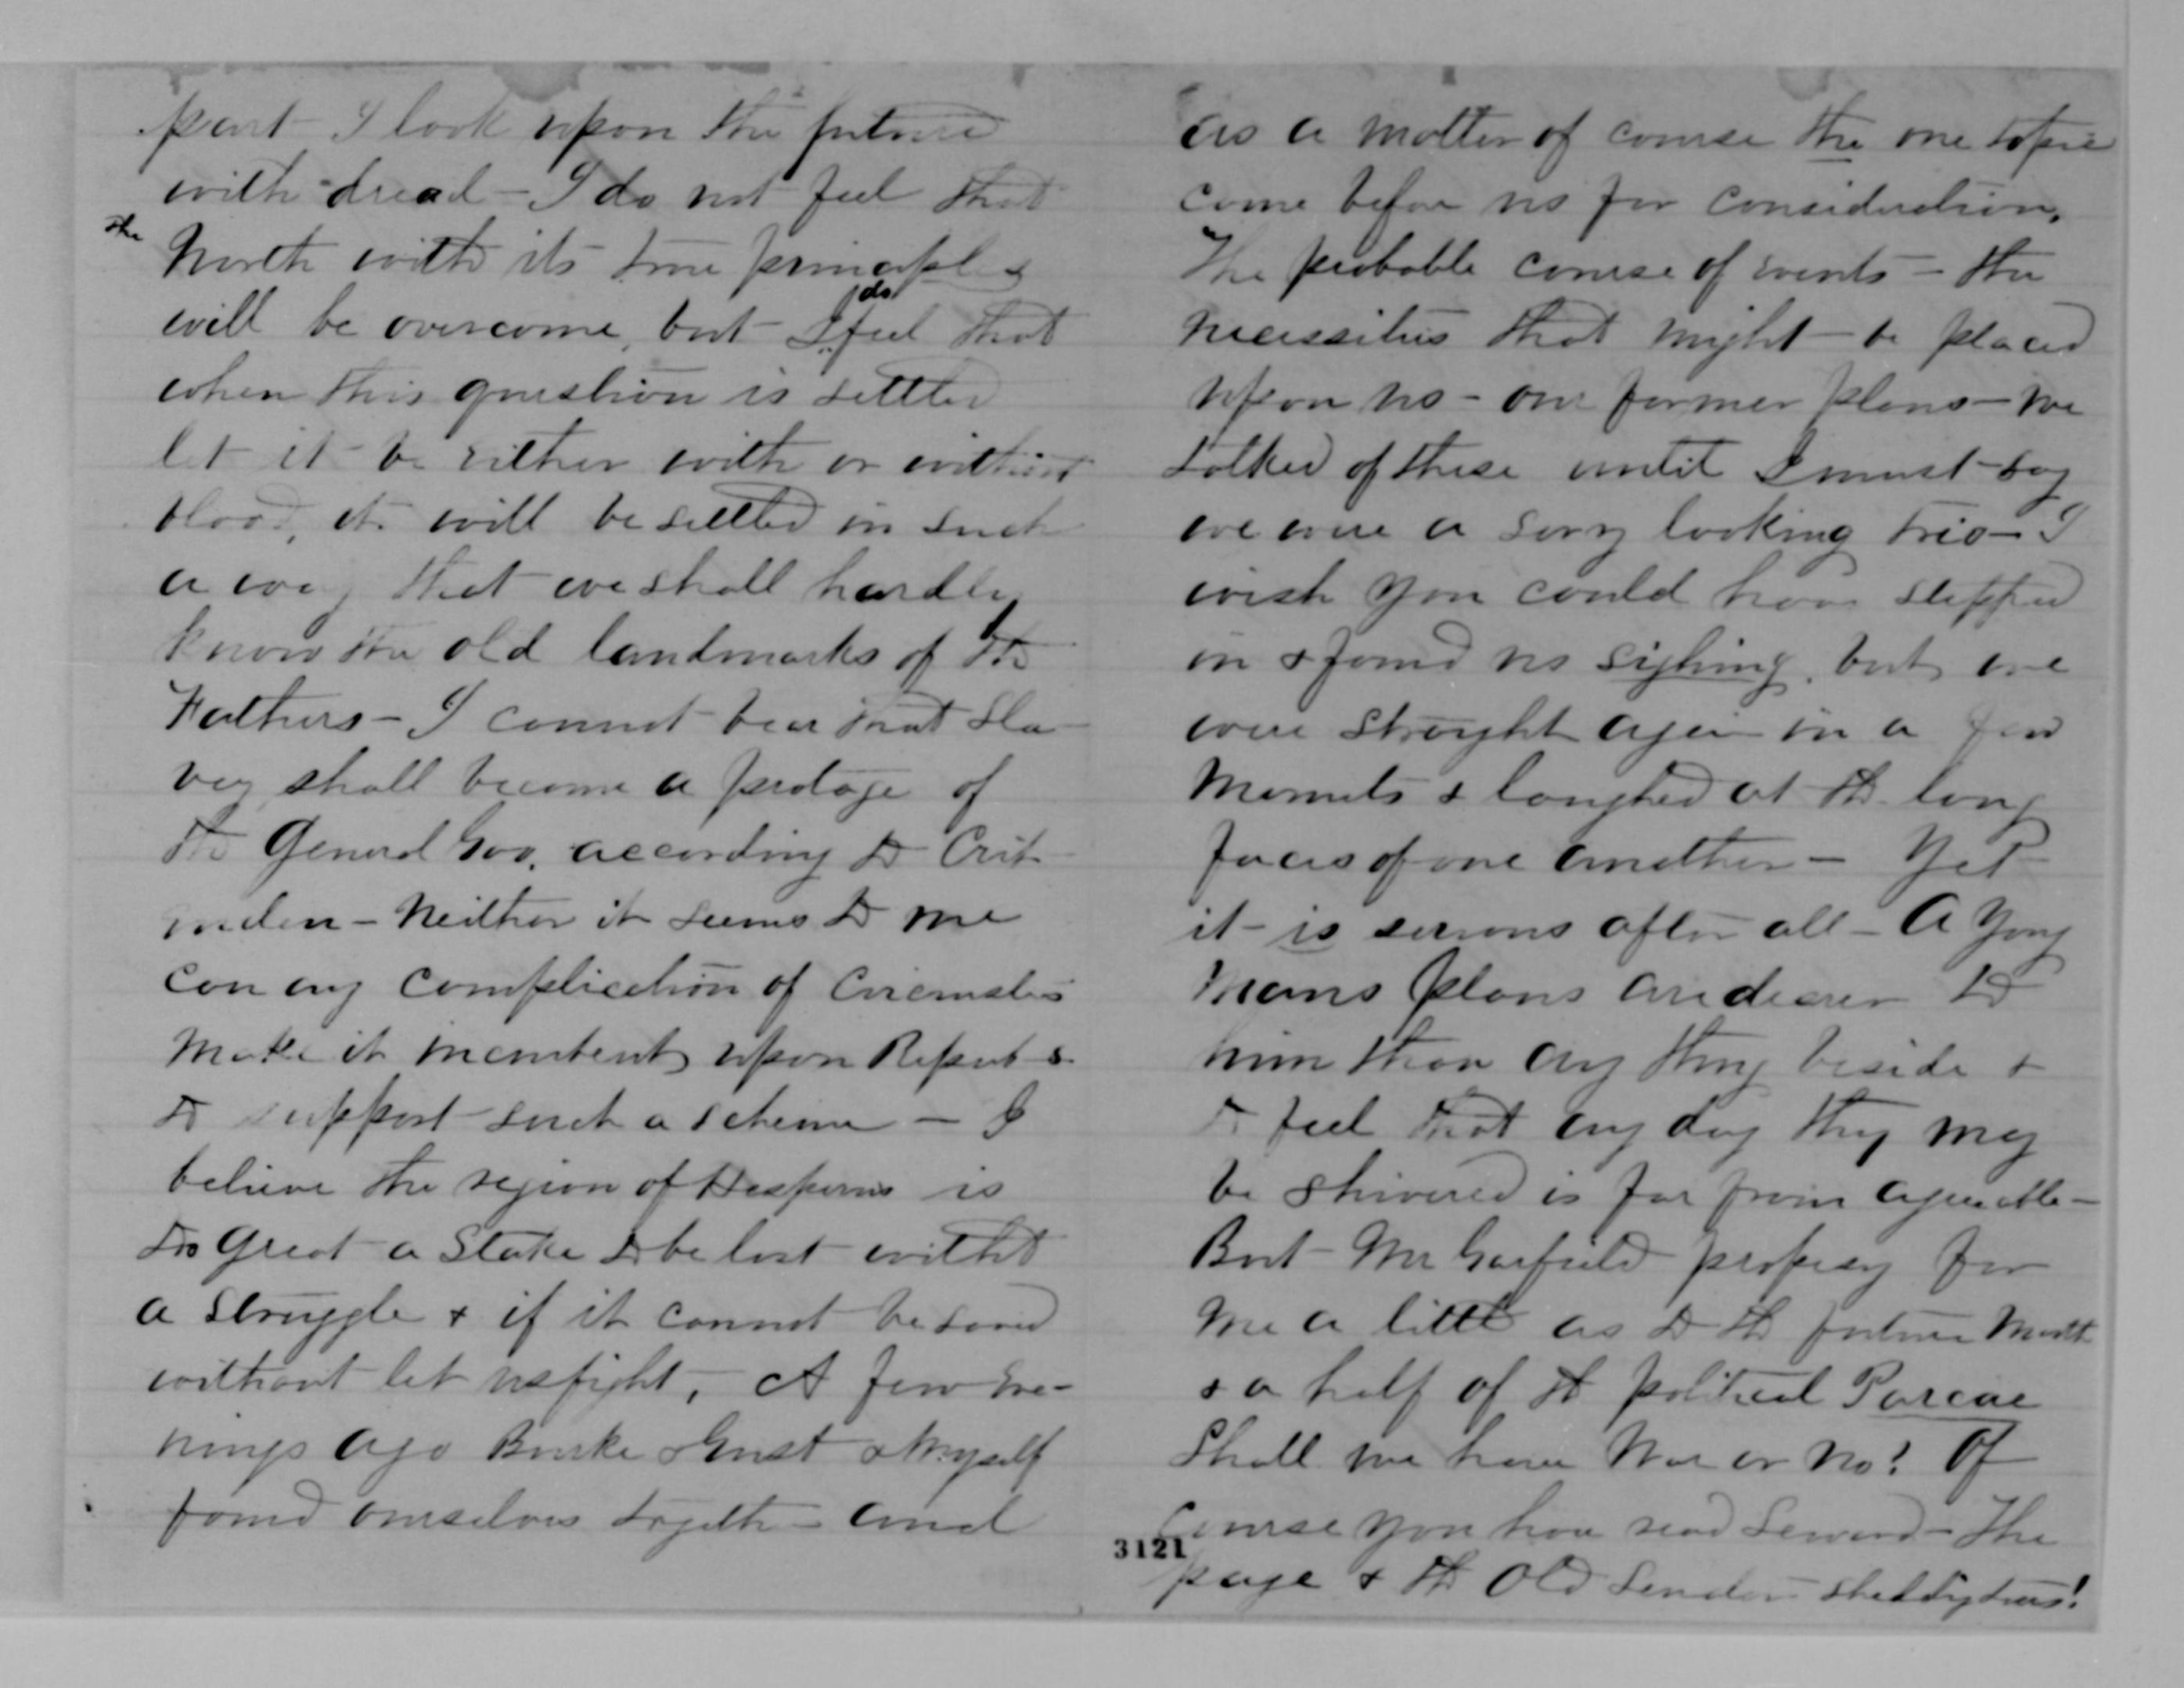 part - I look upon the future
with dread - I do not feel that
the North with its true principles
will be overcome, but I do feel that
when this question is settled
let it be either with or without
blood, it will be settled in such
a way that we shall hardly
know the old landmarks of the
Fathers - I cannot bear that sla-
very shall become a protage of
the General Gov. according to Crit-
enden - Neither it seems to me
can any complication of Circumstces
make it incumbent upon Repub-s
to support such a scheme - I
believe the region of Hesperus is
too great a stake to be lost witht
a struggle & if it cannot be saved
without let us fight, A few eve-
nings ago Burke & Gust & myself
found ourselves together and
as a matter of course the one topic
came before us for consideration,
The probable course of events - the
necessities that might be placed
upon us - our former plans - we
talked of these until I must say
we were a sorry looking trio - I
wish you could have stepped
in & found us sighing, but we
were straight again in a few
moments & laughed at the long
faces of one another - Yet
it is serious after all - A young
mans plans are dearer to
him than any thing beside &
to feel that any day they may
be shivered is far from agreeable -
But Mr Garfield profesy for
me a little as to the future month
& a half of the political Parcae
Shall we have War or no! Of
course you have read Seward - The
page & the old Senator shedding tears!
3121